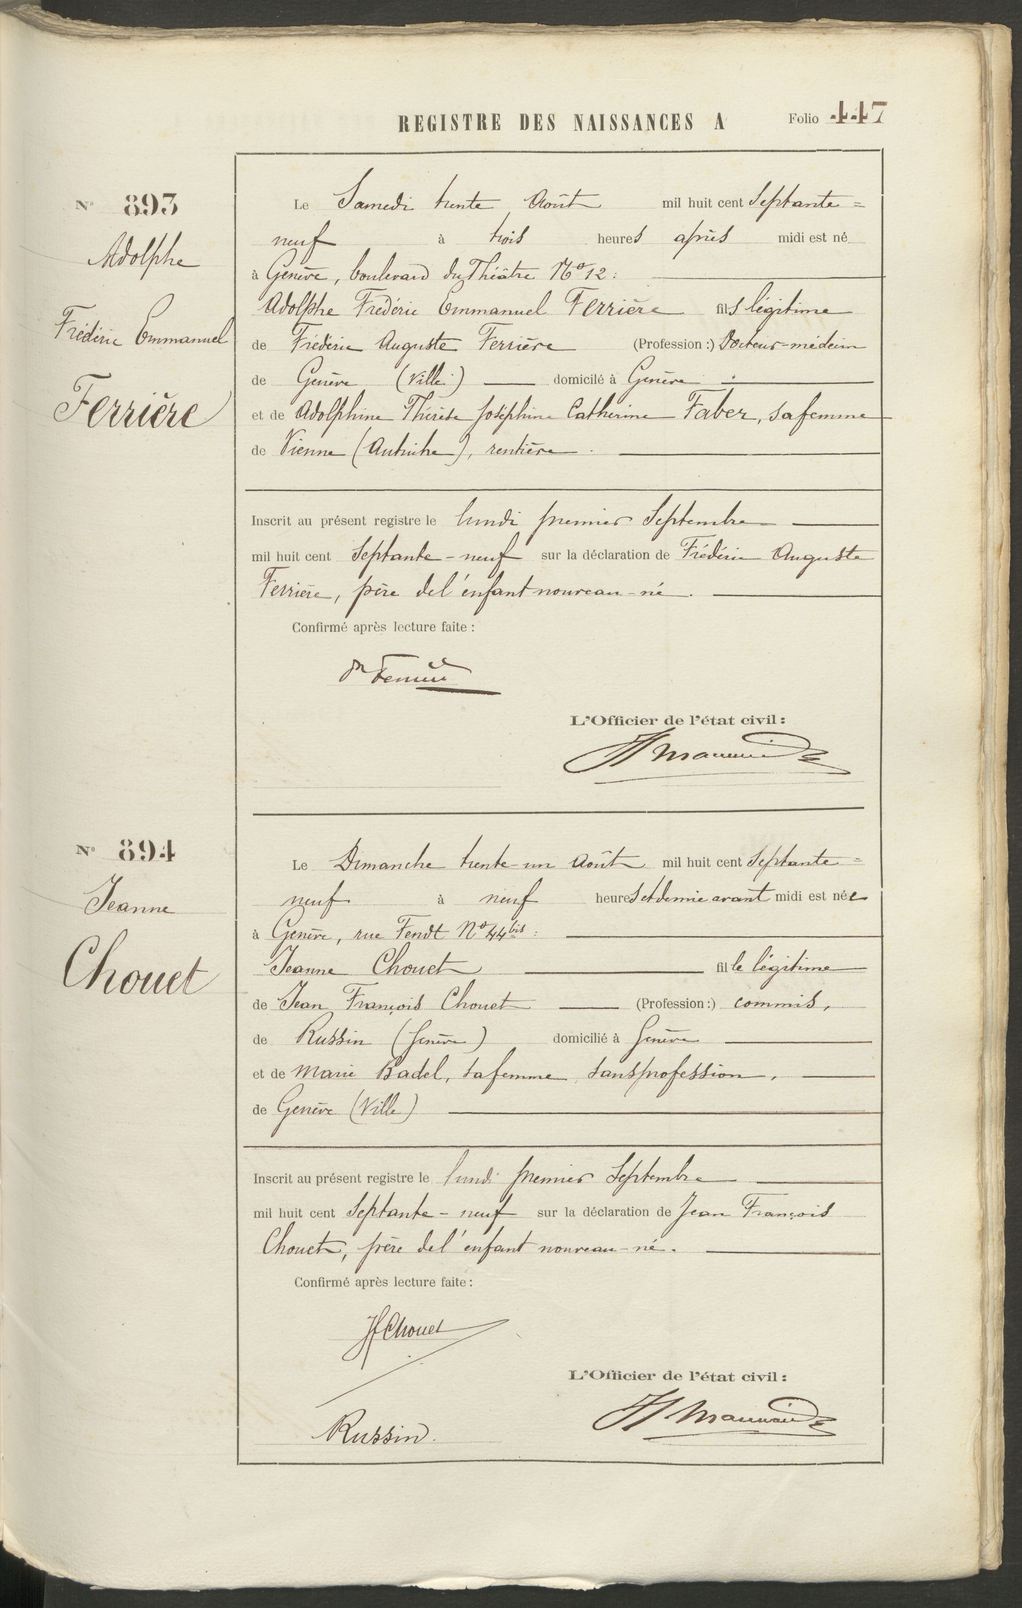 REGISTRE DES NAISSANCES A Folio 447
N° 893
Adolphe
Frédéric Emmanuel
Ferrière
Le Samedi trente Août mil huit cent Septante=
neuf à trois heures après midi est né
à Genève, boulevard du Théâtre No 12:
Adolphe Frédéric Emmanuel Ferrière fils légitime
de Frédéric Auguste Ferrière (Profession:) Docteur-médecin
de Genève (Ville) domicilié à Genève.
et de Adolphine Thérèse Joséphine Catherine Faber, sa femme
de Vienne (Autriche), rentière.
Inscrit au présent registre le lundi premier Septembre
mil huit cent Septante-neuf sur la déclaration de Frédéric Auguste
Ferrière, père de l'enfant nouveau-né.
Confirmé après lecture faite:
Dr Ferrière
L'Officier de l'état civil:
N° 894
Jeanne
Chouet
Le Dimanche trente-un Août mil huit cent Septante=
neuf à neuf heures et demie avant midi est née
à Genève, rue Fendt No 44bis:
Jeanne Chouet fille légitime
de Jean François Chouet (Profession:) commis,
de Russin (Genève) domicilié à Genève
et de Marie Badel, sa femme, sans profession,
de Genève (Ville)
Inscrit au présent registre le lundi premier Septembre
mil huit cent Septante-neuf sur la déclaration de Jean François
Chouet, père de l'enfant nouveau-né.
Confirmé après lecture faite:
Jf Chouet
L'Officier de l'état civil:
Russin.